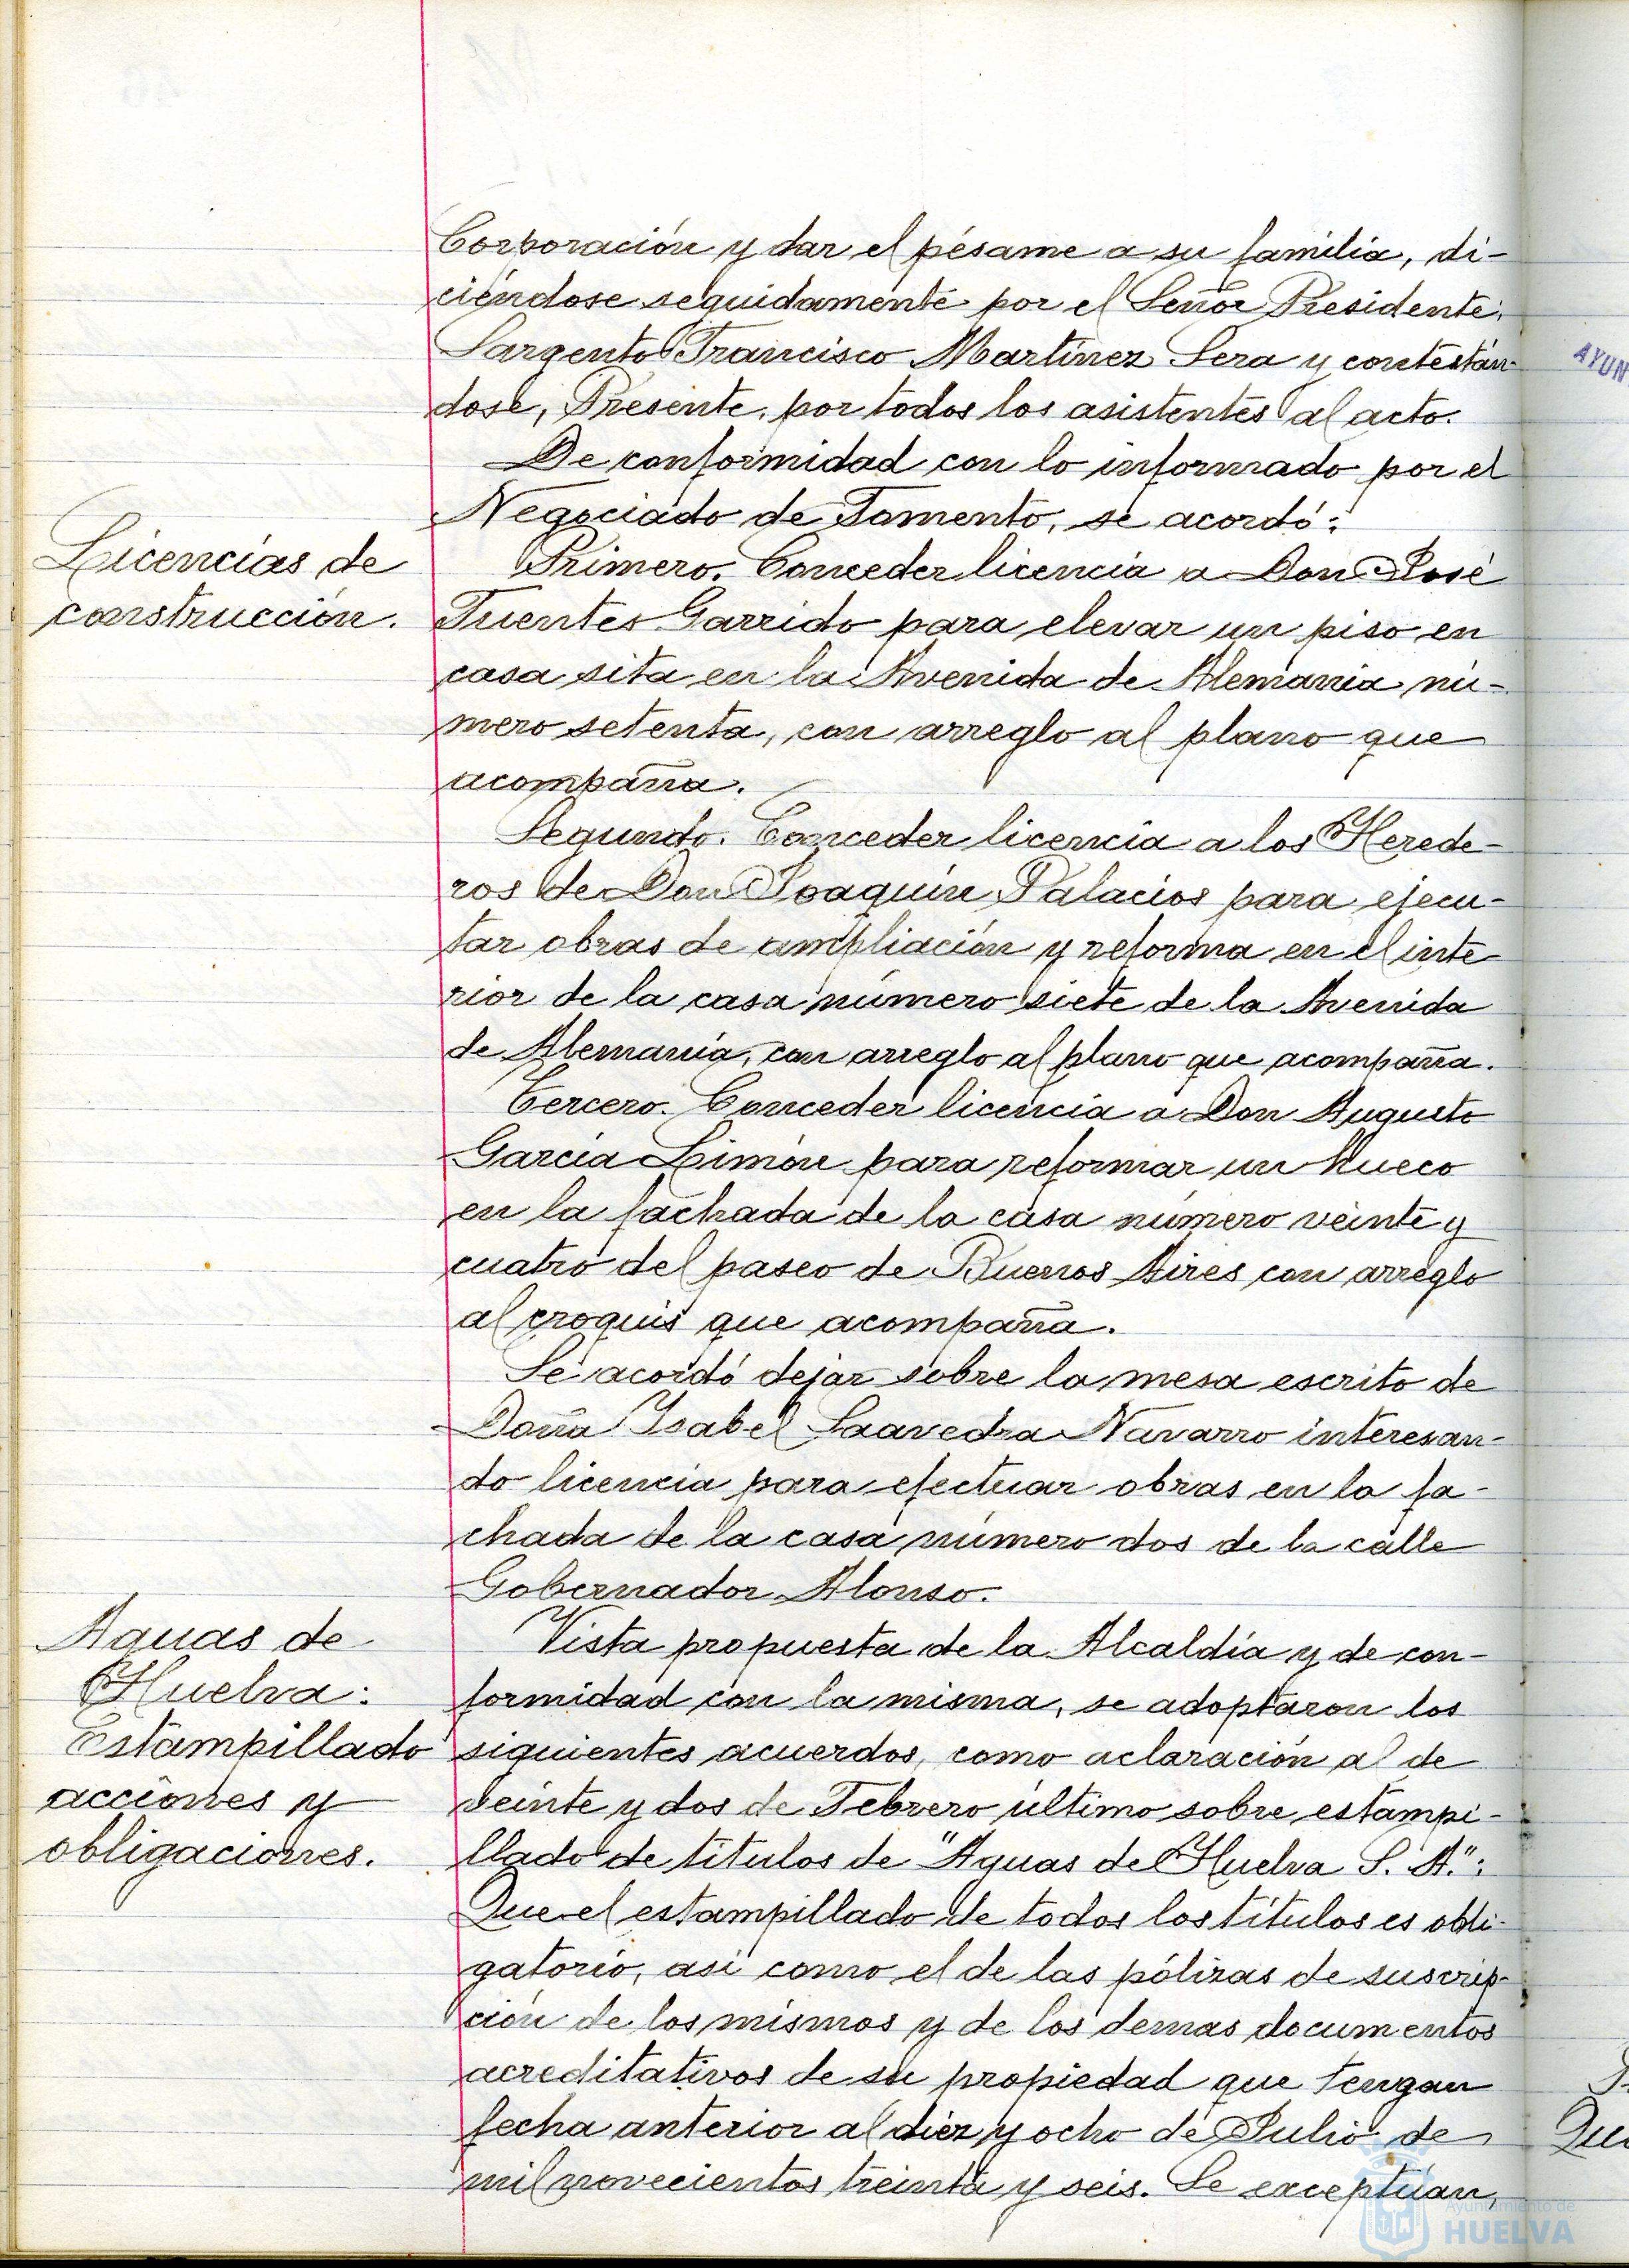 Corporación y dar el pésame a su familia, di-
ciéndose seguidamente por el Señor Presidente:
Sargento Francisco Martínez Sera y contestán-
dose, Presente, por todos los asistentes al acto.
De conformidad con lo informado por el
Negociado de Fomento, se acordó:
Licencias de
construcción.
Primero. Conceder licencia a Don José
Fuentes Garrido para elevar un piso en
casa sita en la Avenida de Alemania nú-
mero setenta, con arreglo al plano que
acompaña.
Segundo. Conceder licencia a los Herede-
ros de Don Joaquín Palacios para ejecu-
tar obras de ampliación y reforma en el inte-
rior de la casa número siete de la Avenida
de Alemania, con arreglo al plano que acompaña.
Tercero. Conceder licencia a Don Augusto
García Limón para reformar un hueco
en la fachada de la casa número veinte y
cuatro del paseo de Buenos Aires con arreglo
al croquis que acompaña.
Se acordó dejar sobre la mesa escrito de
Doña Isabel Saavedra Navarro interesan-
do licencia para efectuar obras en la fa-
chada de la casa número dos de la calle
Gobernador Alonso.
Aguas de
Huelva:
Estampillado
acciones y
obligaciones.
Vista propuesta de la Alcaldía y de con-
formidad con la misma, se adoptaron los
siguientes acuerdos, como aclaración al de
veinte y dos de Febrero último sobre estampi-
llado de títulos de "Aguas de Huelva S. A.":
Que el estampillado de todos los títulos es obli-
gatorio, así como el de las pólizas de suscrip-
ción de los mismos y de los demas documentos
acreditativos de su propiedad que tengan
fecha anterior al diez y ocho de Julio de
mil novecientos treinta y seis. Se exceptúan,
AYUN
Que
Ayuntamiento de
HUELVA